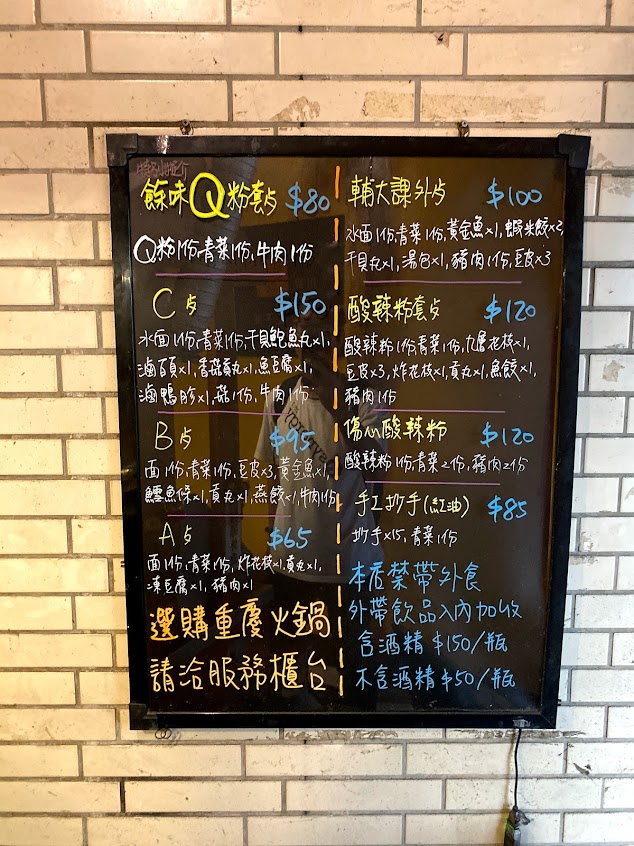 餘味Q粉套占 $80
Q粉1份,青菜1份,牛肉1份
C占 $150
水面1份,青菜1份,干貝鮑魚丸×1,
滷百頁×1,香菇貢丸×1,魚豆腐×1,
滷鴨胗×1,菇1份,牛肉1份
B占 $95
面1份,青菜1份,豆皮×3,黃金魚×1,
鱈魚保×1,貢丸×1,燕餃×1,牛肉1份
A占 $65
面1份,青菜1份,炸花枝×1,貢丸×1,
凍豆腐×1,豬肉×1
選購重慶火鍋
請洽服務櫃台
輔大課外占 $100
水面1份,青菜1份,黃金魚×1,蝦米餃×2,
干貝丸×1,湯包×1,豬肉1份,豆皮×3
酸辣粉套占 $120
酸辣粉1份,青菜1份,九層花枝×1,
豆皮×3,炸花枝×1,貢丸×1,魚餃×1,
豬肉1份
傷心酸辣粉 $120
酸辣粉1份,青菜2份,豬肉2份
手工抄手(紅油) $85
抄手×15,青菜1份
本店禁帶外食
外帶飲品入內加收
含酒精$150/瓶
不含酒精$50/瓶